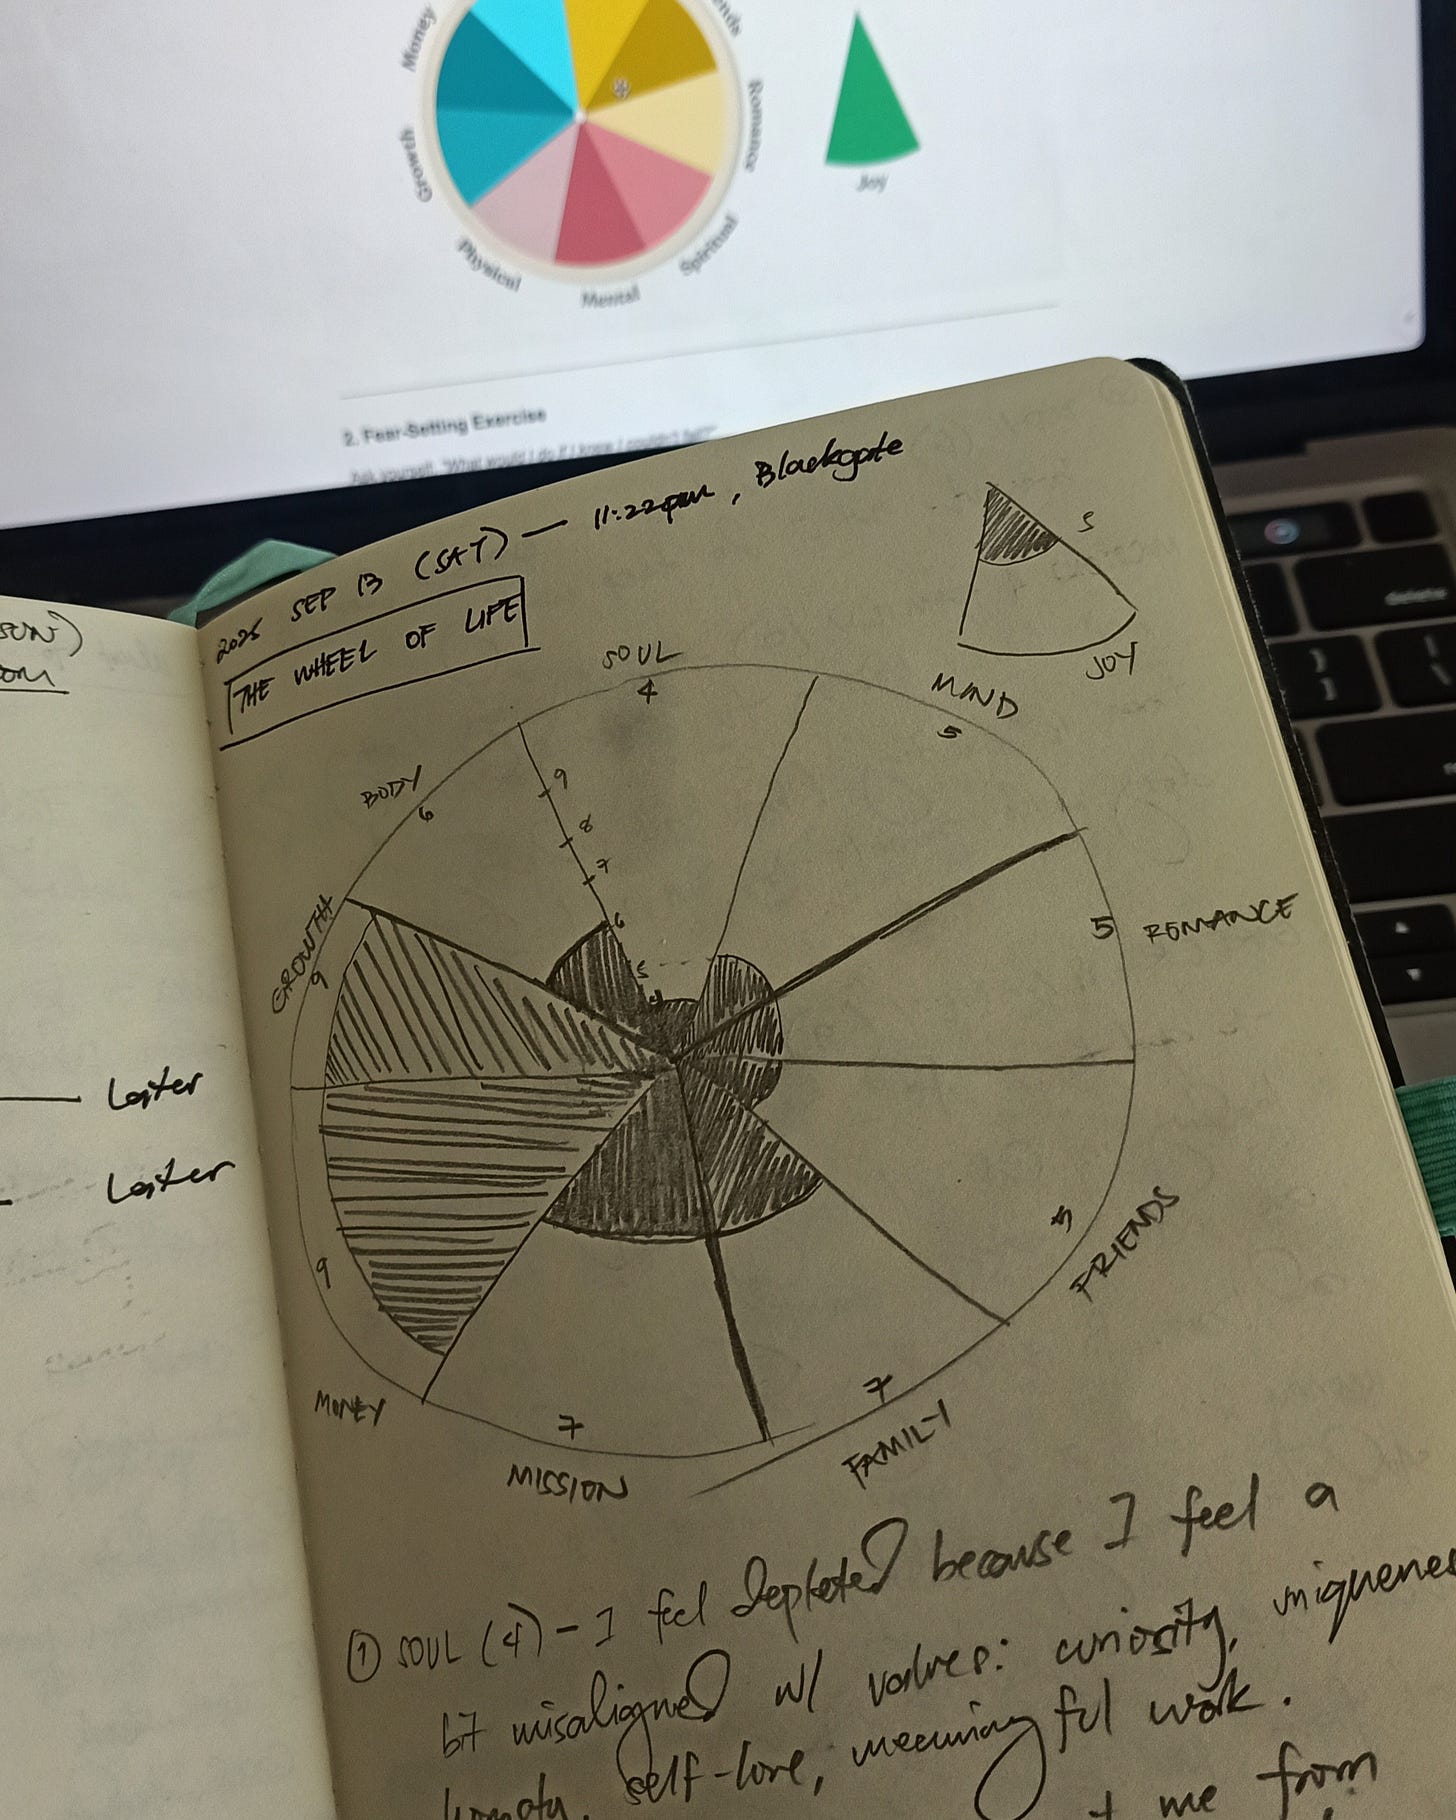 Money
Romance
Growth
Joy
Physical
Spiritual
Mental
2. Fear-Setting Exercise
Ask yourself, "What would I do if I knew I couldn't fail?"
2025 SEP 13 (SAT) — 11:22pm, Blackgate
THE WHEEL OF LIFE
5
JOY
SOUL
4
MIND
5
BODY
6
9
8
7
6
5
4
GROWTH
9
5 ROMANCE
Later
Later
5
FRIENDS
9
MONEY
7
MISSION
7
FAMILY
① SOUL (4) - I feel depleted because I feel a
bt misaligned w/ values: curiosity,
self-love, meaningful work.
me from
delete